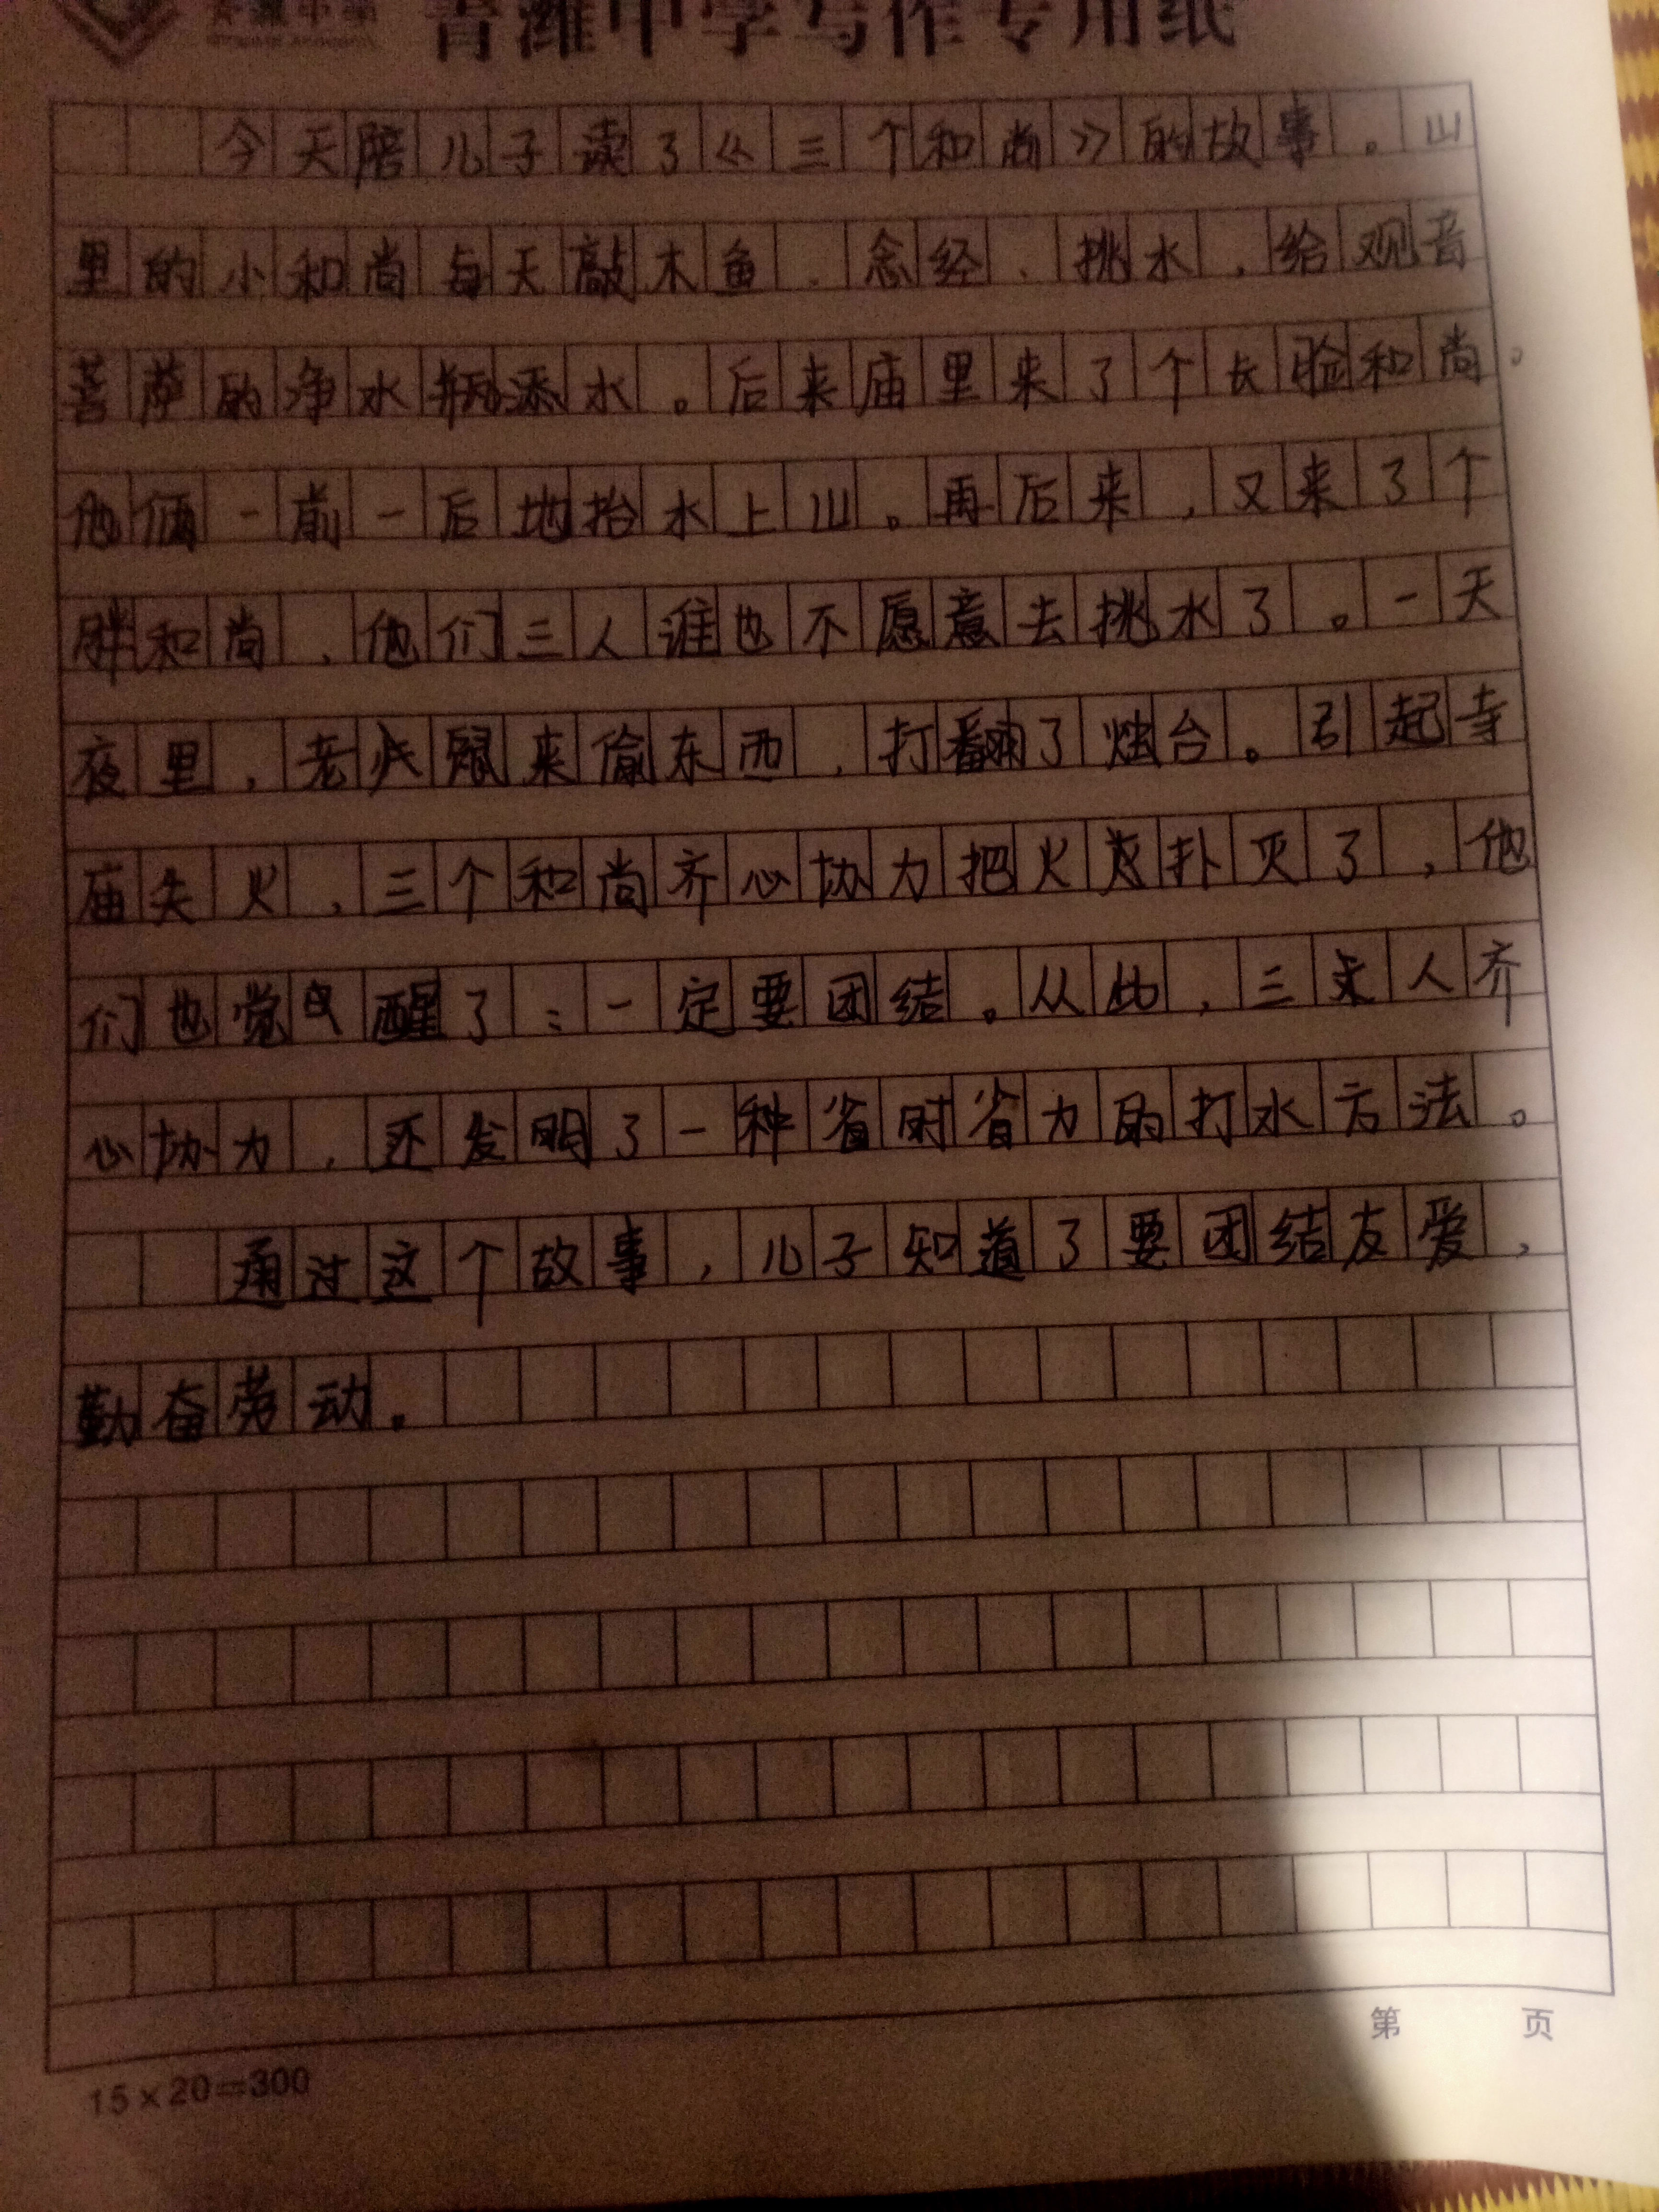 青潍中学写作专用纸
今天陪儿子读了《三个和尚》的故事。山
里的小和尚每天敲木鱼、念经、挑水,给观音
菩萨的净水瓶添水。后来庙里来了个长脸和尚。
他俩一前一后地抬水上山。再后来,又来了个
胖和尚,他们三人谁也不愿意去挑水了。一天
夜里,老鼠来偷东西,打翻了烛台。引起寺
庙失火,三个和尚齐心协力把火扑灭了,他
们也觉醒了:一定要团结。从此,三人齐
心协力,还发明了一种省时省力的打水方法。
通过这个故事,儿子知道了要团结友爱,
勤奋劳动。
第 页
15×20=300